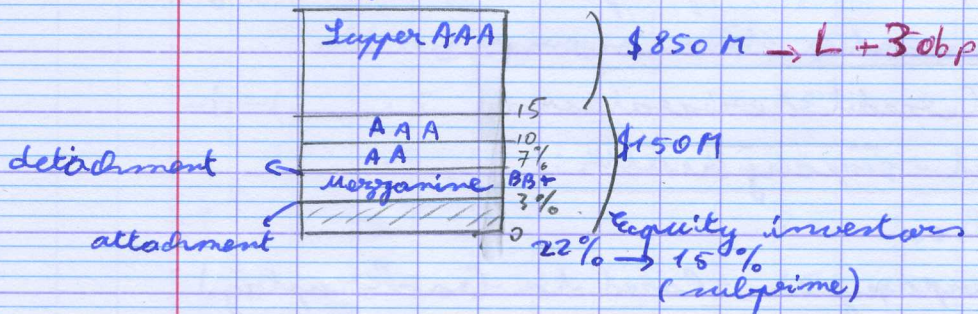 Supper AAA
$850 M → L + 30bp
15
AAA
10
AA
7%
$150M
detachment
Mezzanine
BB+
3%
attachment
0
Equity investors
22% → 15%
(subprime)